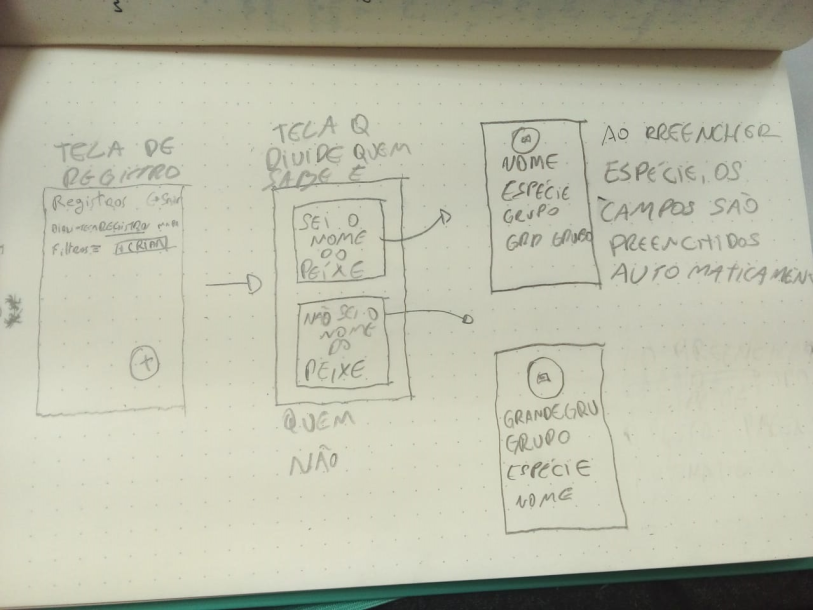 TELA DE
REGISTRO
Registros
REGISTRO
Filtros
+
TELA Q
DIVIDE QUEM
SABE E
SEI O
NOME
DO
PEIXE
NÃO SEI O
NOME
DO
PEIXE
QUEM
NÃO
NOME
ESPÉCIE
GRUPO
GRD GRUPO
AO PREENCHER
ESPÉCIE, OS
CAMPOS SÃO
PREENCHIDOS
AUTOMATICAMEN
GRANDE GRU
GRUPO
ESPÉCIE
NOME